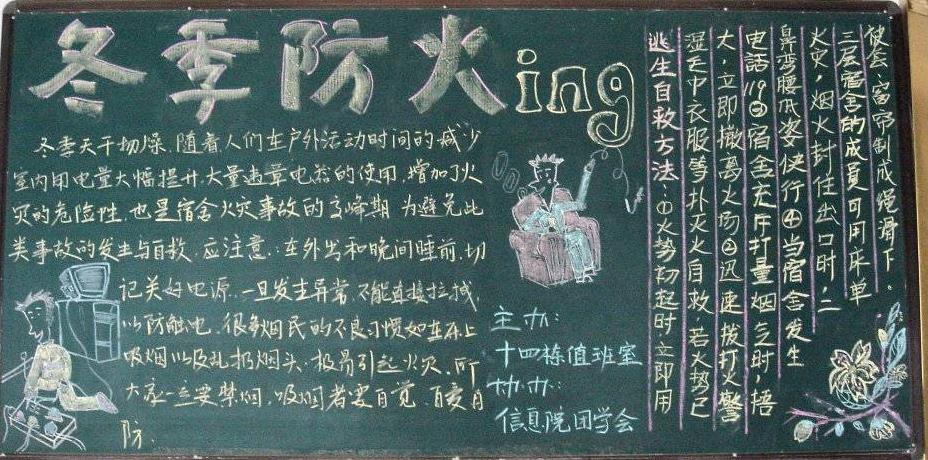 冬季防火ing
冬季天干物燥,随着人们在户外活动时间的减少
室内用电量大幅提升,大量违章电器的使用,增加了火
灾的危险性,也是宿舍火灾事故的高峰期 为避免此
类事故的发生与自救 应注意:在外出和晚间睡前,切
记关好电源.一旦发生异常,不能直接拉扯,
以防触电,很多烟民的不良习惯如在床上
吸烟以及乱扔烟头.极易引起火灾.所
大家一定要禁烟,吸烟者要自觉、自爱自
防.
主办:
十四栋值班室
协办:
信息院团学会
逃生自救方法:①火势初起时立即用
湿毛巾衣服等扑灭火自救 若火势已
大,立即撤离火场②迅速拨打火警
电話119③宿舍充斥打量烟气时,捂
鼻弯腰低姿快行④当宿舍发生
火灾,烟火封住出口时,二
三层宿舍的成員可用床单
被套、窗帘制成绳滑下。